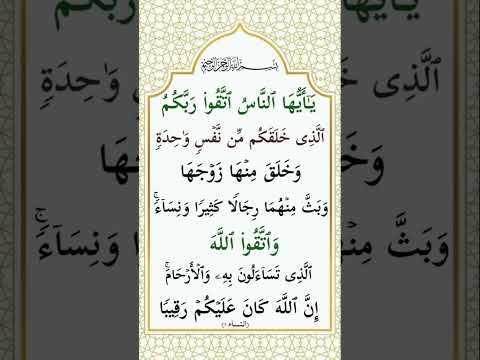 بِسْمِ اللَّهِ الرَّحْمَٰنِ الرَّحِيمِ
يَـٰٓأَيُّهَا ٱلنَّاسُ ٱتَّقُوا۟ رَبَّكُمُ
ٱلَّذِى خَلَقَكُم مِّن نَّفْسٍ وَٰحِدَةٍ
وَخَلَقَ مِنْهَا زَوْجَهَا
وَبَثَّ مِنْهُمَا رِجَالًا كَثِيرًا وَنِسَآءً ۚ
وَٱتَّقُوا۟ ٱللَّهَ
ٱلَّذِى تَسَآءَلُونَ بِهِۦ وَٱلْأَرْحَامَ ۚ
إِنَّ ٱللَّهَ كَانَ عَلَيْكُمْ رَقِيبًا
(النساء ١)